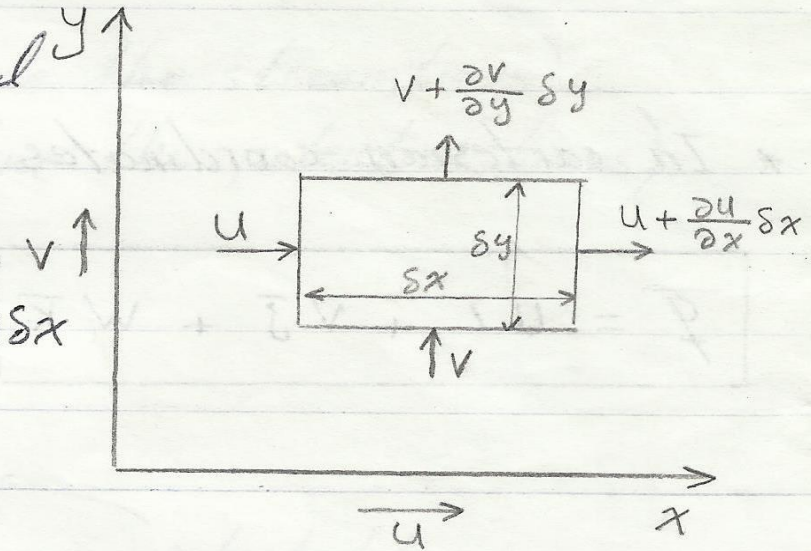 y
V + ∂V/∂y δy
U
δy
U + ∂U/∂x δx
V
δx
δx
V
U
x